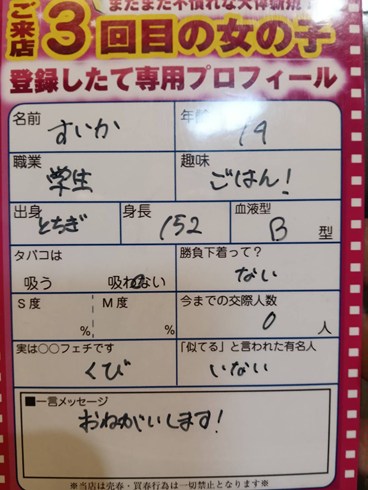 まだまだ不慣れな大体新規！
ご来店
3回目の女の子
登録したて専用プロフィール
名前 すいか 年齢 19
職業 学生 趣味 ごはん!
出身 とちぎ 身長 152 血液型 B 型
タバコは 吸う 吸わない 勝負下着って？ ない
S度 % M度 % 今までの交際人数 0 人
実は○○フェチです くび 「似てる」と言われた有名人 いない
■一言メッセージ
おねがいします!
※当店は売春・買春行為は一切禁止となります※